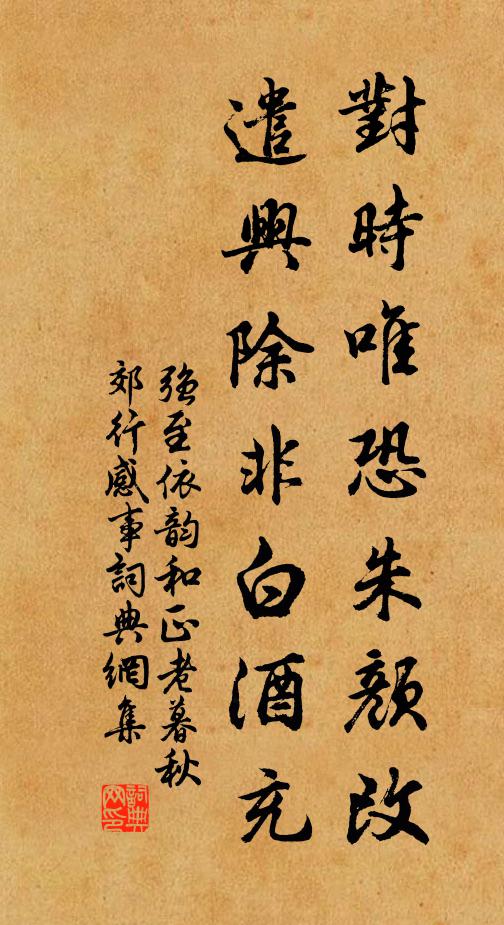 對時唯恐朱顏改
遣興除非白酒充
強至依韵和正老暮秋
郊行感事詞典網集
詞典
网印